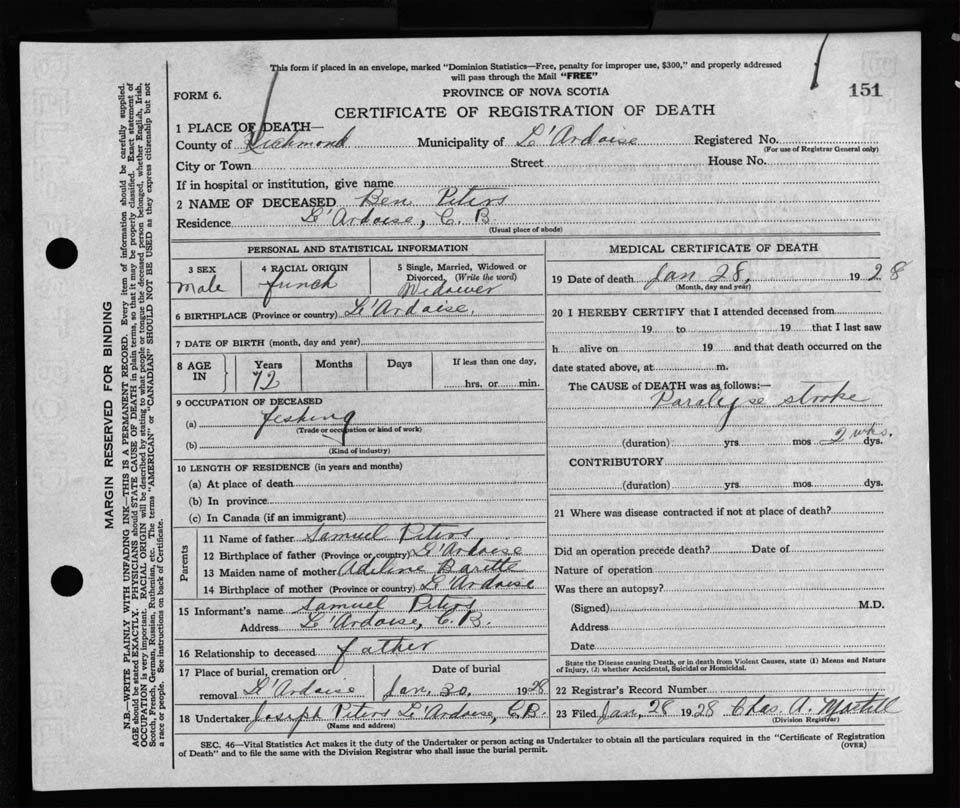 This form if placed in an envelope, marked "Dominion Statistics—Free, penalty for improper use, $300," and properly addressed
will pass through the Mail "FREE"
151
FORM 6.
PROVINCE OF NOVA SCOTIA
CERTIFICATE OF REGISTRATION OF DEATH
1 PLACE OF DEATH—
County of Richmond Municipality of L'Ardoise Registered No.
(For use of Registrar General only)
City or Town Street House No.
If in hospital or institution, give name
2 NAME OF DECEASED Ben Peters
Residence L'Ardoise, C. B.
(Usual place of abode)
PERSONAL AND STATISTICAL INFORMATION
3 SEX 4 RACIAL ORIGIN 5 Single, Married, Widowed or
Divorced, (Write the word)
Male french Widower
6 BIRTHPLACE (Province or country) L'Ardoise.
7 DATE OF BIRTH (month, day and year)
8 AGE IN Years Months Days If less than one day,
72 hrs. or min.
9 OCCUPATION OF DECEASED
(a) fishing
(Trade or occupation or kind of work)
(b)
(Kind of industry)
10 LENGTH OF RESIDENCE (in years and months)
(a) At place of death
(b) In province
(c) In Canada (if an immigrant)
Parents
11 Name of father Samuel Peters
12 Birthplace of father (Province or country) L'Ardoise
13 Maiden name of mother Adeline Barette
14 Birthplace of mother (Province or country) L'Ardoise
15 Informant's name Samuel Peters
Address L'Ardoise, C. B.
16 Relationship to deceased father
17 Place of burial, cremation or Date of burial
removal L'Ardoise Jan. 30, 1928
18 Undertaker Joseph Peters L'Ardoise, C.B.
(Name and address)
MEDICAL CERTIFICATE OF DEATH
19 Date of death Jan 28, 1928
(Month, day and year)
20 I HEREBY CERTIFY that I attended deceased from
19 to 19 that I last saw
h alive on 19 and that death occurred on the
date stated above, at m.
The CAUSE of DEATH was as follows:—
Paralyse stroke
(duration) yrs. mos 2 wks. dys.
CONTRIBUTORY
(duration) yrs. mos. dys.
21 Where was disease contracted if not at place of death?
Did an operation precede death? Date of
Nature of operation
Was there an autopsy?
(Signed) M.D.
Address
Date
State the Disease causing Death, or in death from Violent Causes, state (1) Means and Nature
of Injury, (2) whether Accidental, Suicidal or Homicidal.
22 Registrar's Record Number
23 Filed Jan, 28 1928 Chas. A.
(Division Registrar)
SEC. 46—Vital Statistics Act makes it the duty of the Undertaker or person acting as Undertaker to obtain all the particulars required in the "Certificate of Registration
of Death" and to file the same with the Division Registrar who shall issue the burial permit.
(OVER)
MARGIN RESERVED FOR BINDING
N.B.—WRITE PLAINLY WITH UNFADING INK—THIS IS A PERMANENT RECORD. Every item of information should be carefully supplied.
AGE should be stated EXACTLY. PHYSICIANS should STATE CAUSE OF DEATH in plain terms, so that it may be properly classified. Exact statement of
OCCUPATION is very important. RACIAL ORIGIN will be described by stating to what people or tongue the deceased person belonged, whether English, Irish,
Scotch, French, German, Russian, Ruthenian, etc. The terms "AMERICAN" or "CANADIAN" SHOULD NOT BE USED as they express citizenship but not
a race or people. See instructions on back of Certificate.